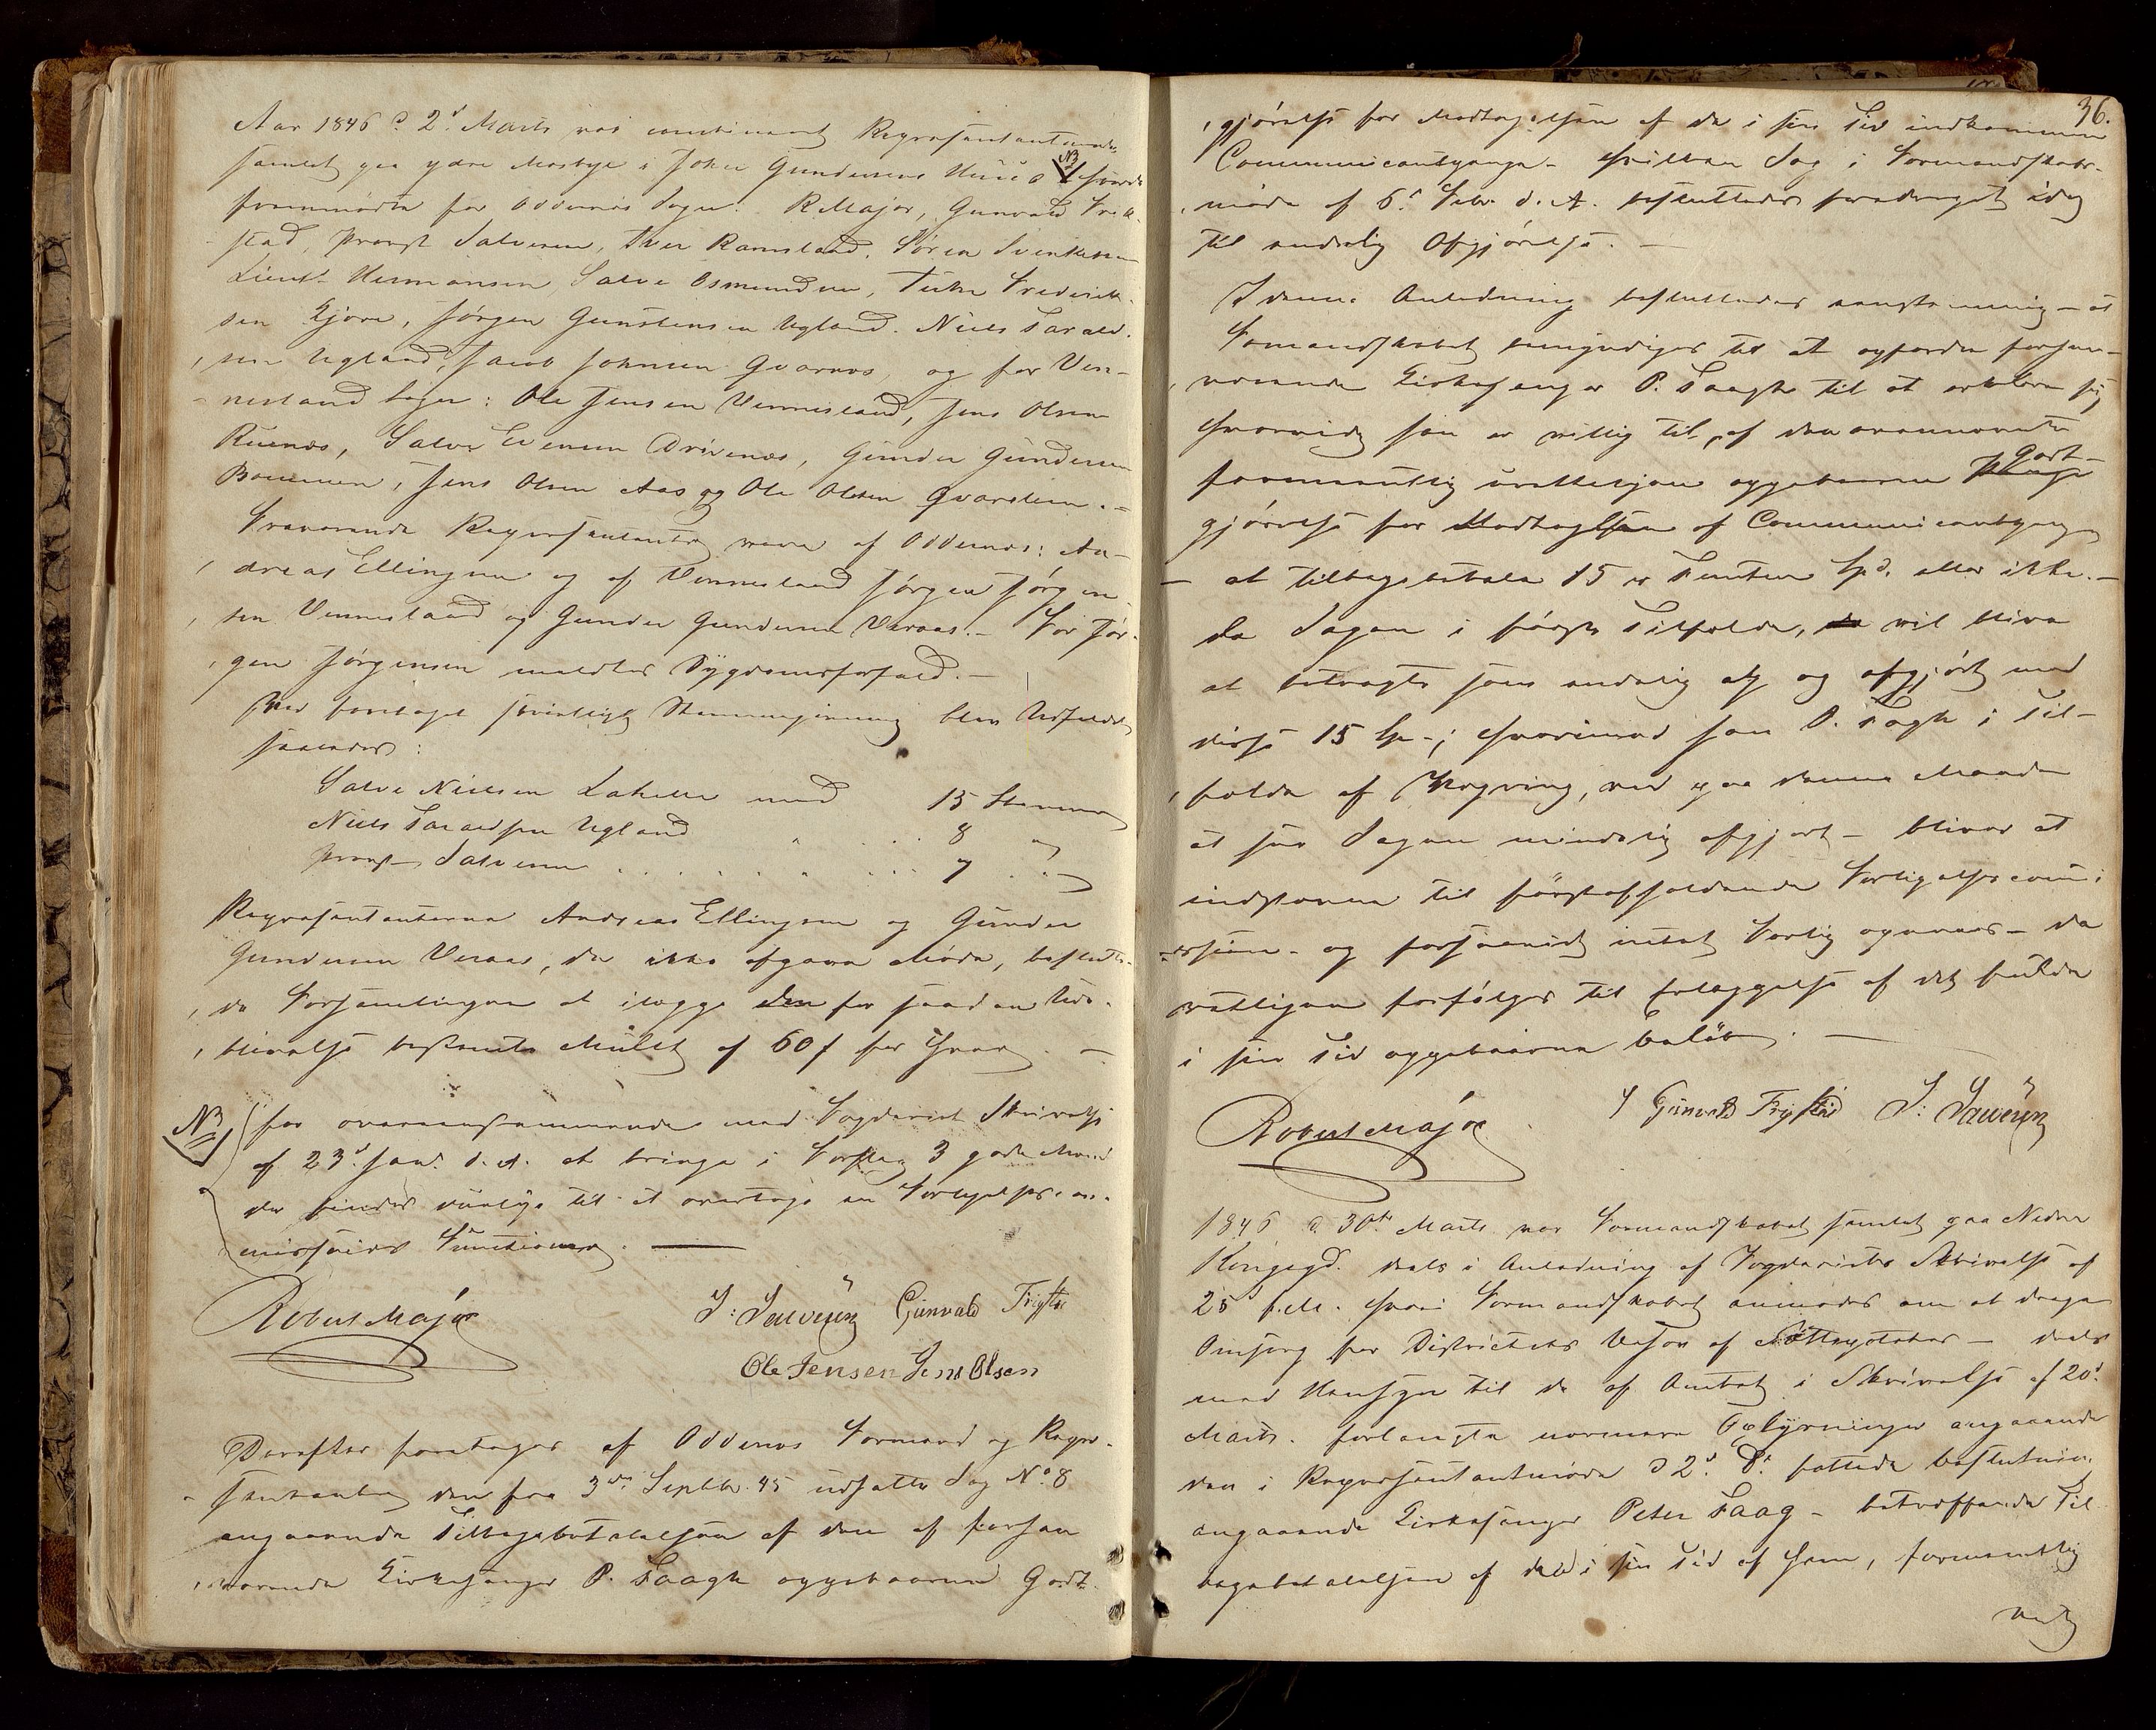 Aar 1846 d. 2d Marts var combineret Repræsentantmøde
samlet paa ydre Mosbye i John Gundersens Huus NB hvorda
fremmødte for Oddernes Sogn: R. Major, Gunvald Frik-
stad, Provst Salvesen, Iver Ramsland, Søren Svenkesen
Lieut. Hermansen, Salve Osmundsen, Terke Fredrik-
sen Gjøre, Jørgen Gunstensen Ugland. Niels Tarald-
sen Ugland, Jacob Johnsen Qvarnes, og for Ven-
nesland Sogn: Ole Jensen Vennesland, Jens Olsen
Ruenæs, Salve Evensen Drivenæs, Gunder Gundersen
Boumen, Jens Olsen Aas og Ole Olsen Qvarstein.
Fraværende Repræsentanter vare af Oddernes: An-
dreas Ellingsen og af Vennesland Jørgen Jørgen
sen Vennesland og Gunder Gundersen Veraas. For Jør-
gen Jørgensen meldtes Sygdomsforfald.
Ved foretaget skriftligt Stemmegivning blev Udfaldet
saaledes:
Salve Nielsen med 15 Stemmer
Niels Taraldsen Ugland 8
Provst Salvesen 7
Repræsentanterne Andreas Ellingsen og Gunder
Gundersen Veraas, der ikke afgave Møde, beslutte-
de Forsamlingen at ilægge den for saadan Ude-
blivelse bestemte Mulct af 60 f for hver.
NB for overeensstemmende med Fogderiets Skrivelse
af 23d Jan. d. A. at bringe i Forslag 3 gode Mænd
der findes duelige til at overtage en Forligelsescom-
missairs Functioner.
Robert Major S: Salvesen Gunvald Frigstad
Ole Jensen Jens Olsen
Derefter foretages af Oddernes Formænd og Repræ-
sentanter den fra 3die Septbr. 45 udsatte Sag No 8
angaaende Tilbagebetalelsen af den af forhen
værende Kirkesanger P. Taagk oppebaarne Godt-
36.
gjørelse for Modtagelsen af de i sin Tid indkomne
Communicantpenge - hvilken Sag i Formandskabs-
møde af 6d Febr. d. A. besluttedes foredraget idag
til endelig Afgjørelse.
I denne Anledning besluttedes eenstemmig - at
Formandskabet bemyndiges til at opfordre forhen-
værende Kirkesanger P. Taagk til at erklære sig
hvorvidt han er villig til, af den ovennævnte
formeentlig uretteligen oppebaarne Godt-
gjørelse for Modtagelsen af Communicantpenge
- at tilbagebetale 15 er Femten Spd. eller ikke.
da Sagen i første Tilfælde, vil blive
at betragte som endelig og afgjort med
disse 15 Sp -; hvorimod han P. Tagk i Til-
fælde af Vægring, ved paa denne Maade
at see Sagen mindelig afgjort - bliver at
indstevne til førstafholdende Forligelsescommi-
ssion - og forsaavidt intet Forlig opnaaes - da
retligen forfølges til Erlæggelse af det fulde
i sin Tid oppebaarne Beløb.
Robert Major Gunvald Frigstad S: Salvesen
1846 d 30te Marts var Formandskabet samlet paa Nedre
Kongsgd. deels i Anledning af Fogderiets Skrivelse af
25d f. M. hvori Formandskabet anmodes om at drage
Omsorg for Districtets Besør af - deels
med Hensyn til de af Amtet i Skrivelse af 20d
Marts. forlangte nærmere Oplysninger angaaende
den i Repræsentantmøde d 2d ds fattede Beslutning
angaaende Kirkesanger Peter Taag - betræffende Til
bagebetalelsen af det i sin Tid af ham, formeentlig
uret